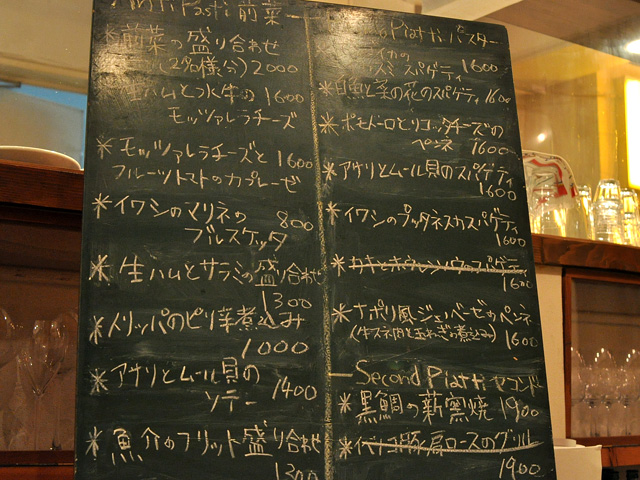 Antipasti 前菜
*前菜の盛り合わせ
(2名様分) 2000
生ハムと水牛の 1600
モッツァレラチーズ
*モッツァレラチーズと 1600
フルーツトマトのカプレーゼ
*イワシのマリネの 800
ブルスケッタ
*生ハムとサラミの盛り合わせ
1300
*トリッパのピリ辛煮込み
1000
*アサリとムール貝の
ソテー 1400
*魚介のフリット盛り合わせ
1300
Piatti パスター
イカの
スミスパゲティ 1600
*白魚と菜の花のスパゲティ 1600
*ポモドーロとリコッタチーズの
ペンネ 1600
*アサリとムール貝のスパゲティ
1600
*イワシのプッタネスカスパゲティ
1600
*カキとホウレンソウのスパゲティ
1600
*ナポリ風ジェノベーゼのペンネ
(牛スネ肉と玉ねぎの煮込み) 1600
—Second Piatti セコンド
*黒鯛の薪窯焼 1900
*イベリコ豚肩ロースのグリル
1900